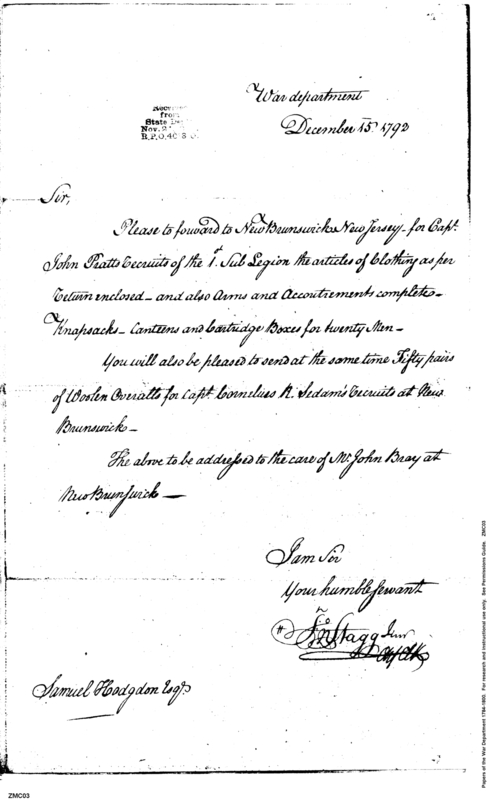 War department
December 15th 1792
Received
from
State De
Nov. 2
R.P.O. 40
Sir,
Please to forward to New Brunswick New Jersey - for Capt.
John Pratts Recruits of the 1st Sub Legion the articles of Clothing as per
Return enclosed - and also Arms and Accoutrements complete -
Knapsacks - Canteens and Cartridge Boxes for twenty Men -
You will also be pleased to send at the same time Fifty pairs
of Woolen Overalls for Capt. Cornelius R. Sedam's Recruits at New
Brunswick -
The above to be addressed to the care of Mr. John Bray at
New Brunswick -
I am Sir
Your humble servant
Jno Stagg Junr
Chf Clk
Samuel Hodgdon Esqr.
ZMC03
Papers of the War Department 1784-1800. For research and instructional use only. See Permissions Guide. ZMC03